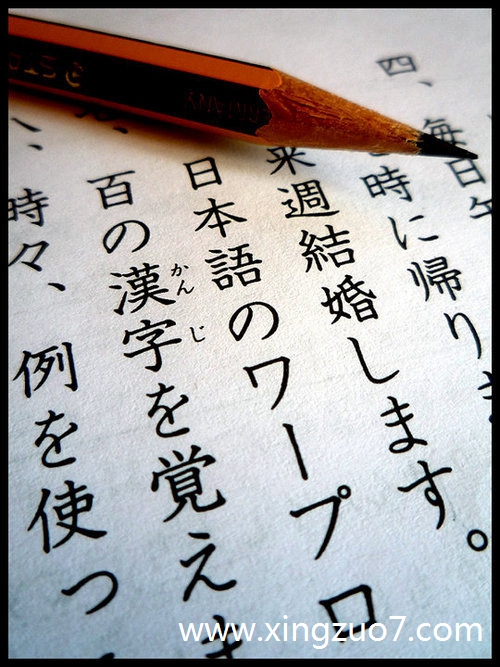 四、毎日午
時に帰り
来週結婚します。
日本語のワープロ
百の漢字を覚え
かんじ
、時々、例を使っ
www.xingzuo7.com